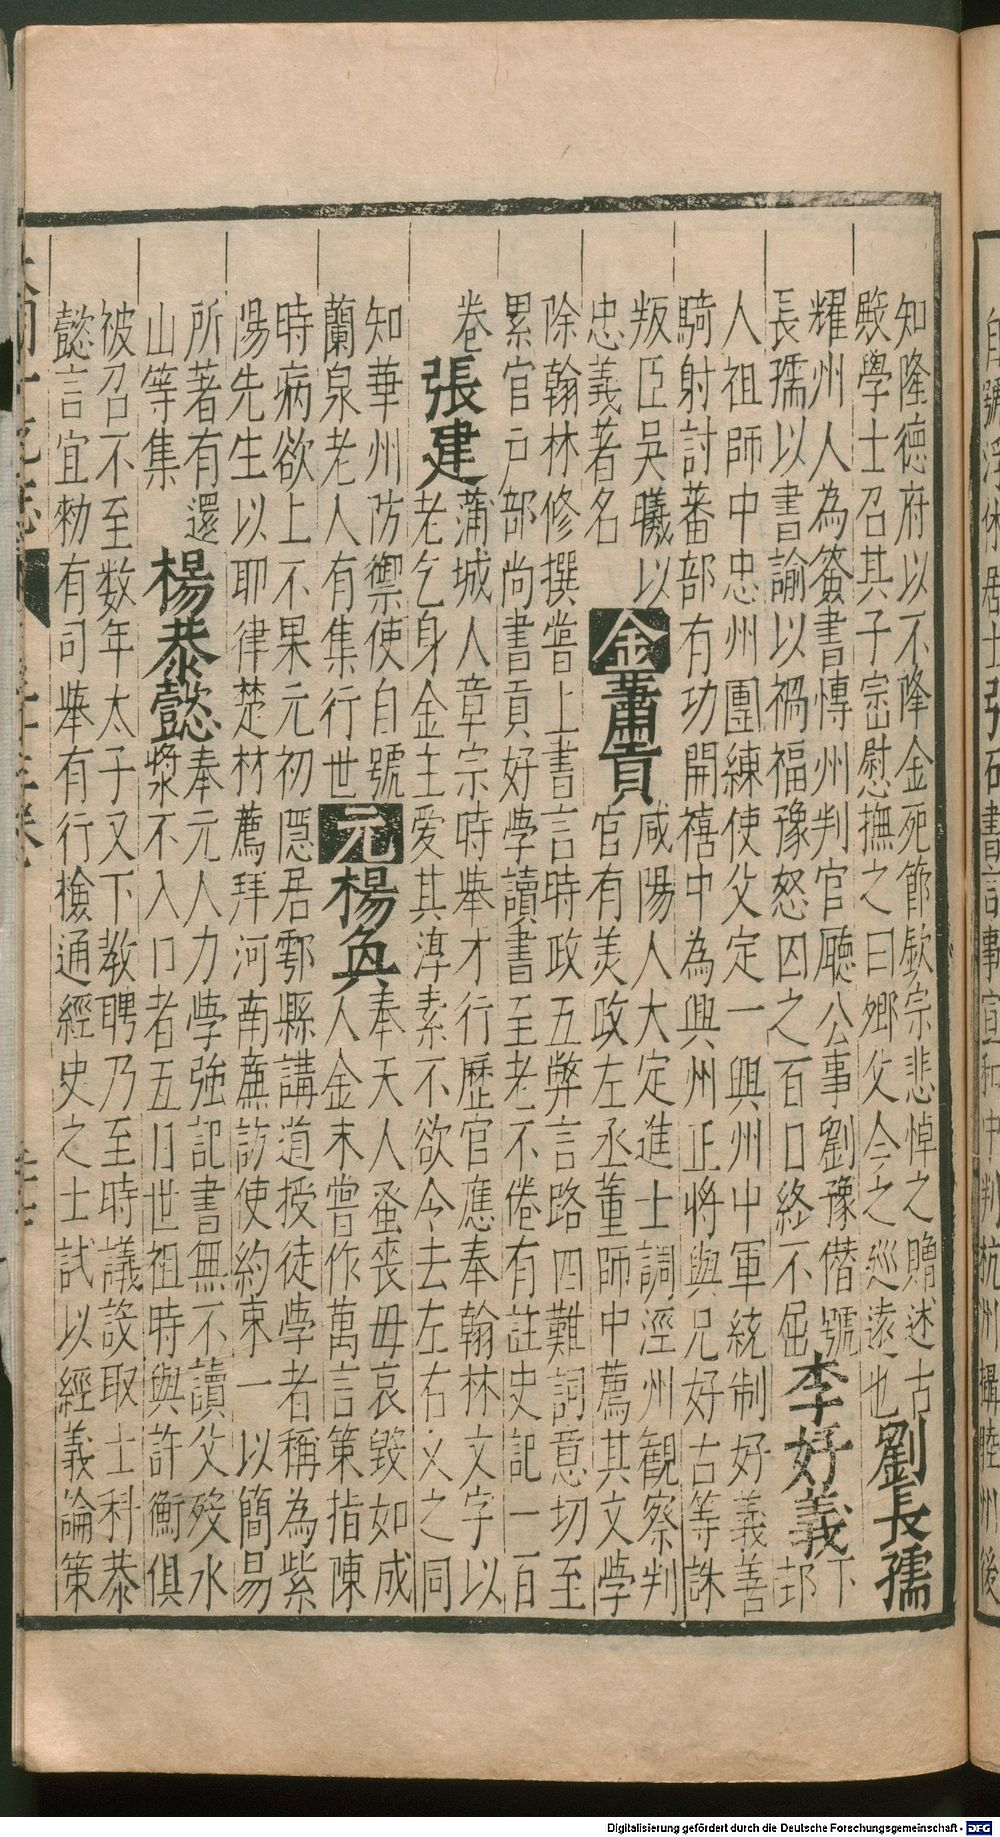 自號浮休居士
知隆德府以不降金死節欽宗悲悼之贈述古
殿學士召其子宗慰撫之曰鄉父今之巡遠也
劉長孺
耀州人為簽書博州判官廳公事劉豫僭號
長孺以書諭以禍福豫怒囚之百日終不屈
李好義
下
邽
人祖師中忠州團練使父定一興州中軍統制好義善
騎射討蕃部有功開禧中為興州正將與兄好古等誅
叛臣吳曦以
忠義著名
金
蕭貢
咸陽人大定進士調涇州觀察判
官有美政左丞董師中薦其文學
除翰林修撰嘗上書言時政五弊言路四難詞意切至
累官户部尚書貢好學讀書至老不倦有註史記一百
卷
張建
蒲城人章宗時舉才行歷官應奉翰林文字以
老乞身金主爱其淳素不欲令去左右又之同
知華州防禦使自號
蘭泉老人有集行世
元
楊奐
奉天人蚤喪母哀毀如成
人金末嘗作萬言策指陳
時病欲上不果元初隠居鄠縣講道授徒學者稱為紫
陽先生以耶律楚材薦拜河南廉訪使約束一以簡易
所著有還
山等集
楊恭懿
奉元人力學強記書無不讀父歿水
漿不入口者五日世祖時與許衡俱
被召不至数年太子又下教聘乃至時議設取士科恭
懿言宜勑有司舉有行檢通經史之士試以經義論策
Digitalisierung gefördert durch die Deutsche Forschungsgemeinschaft - DFG